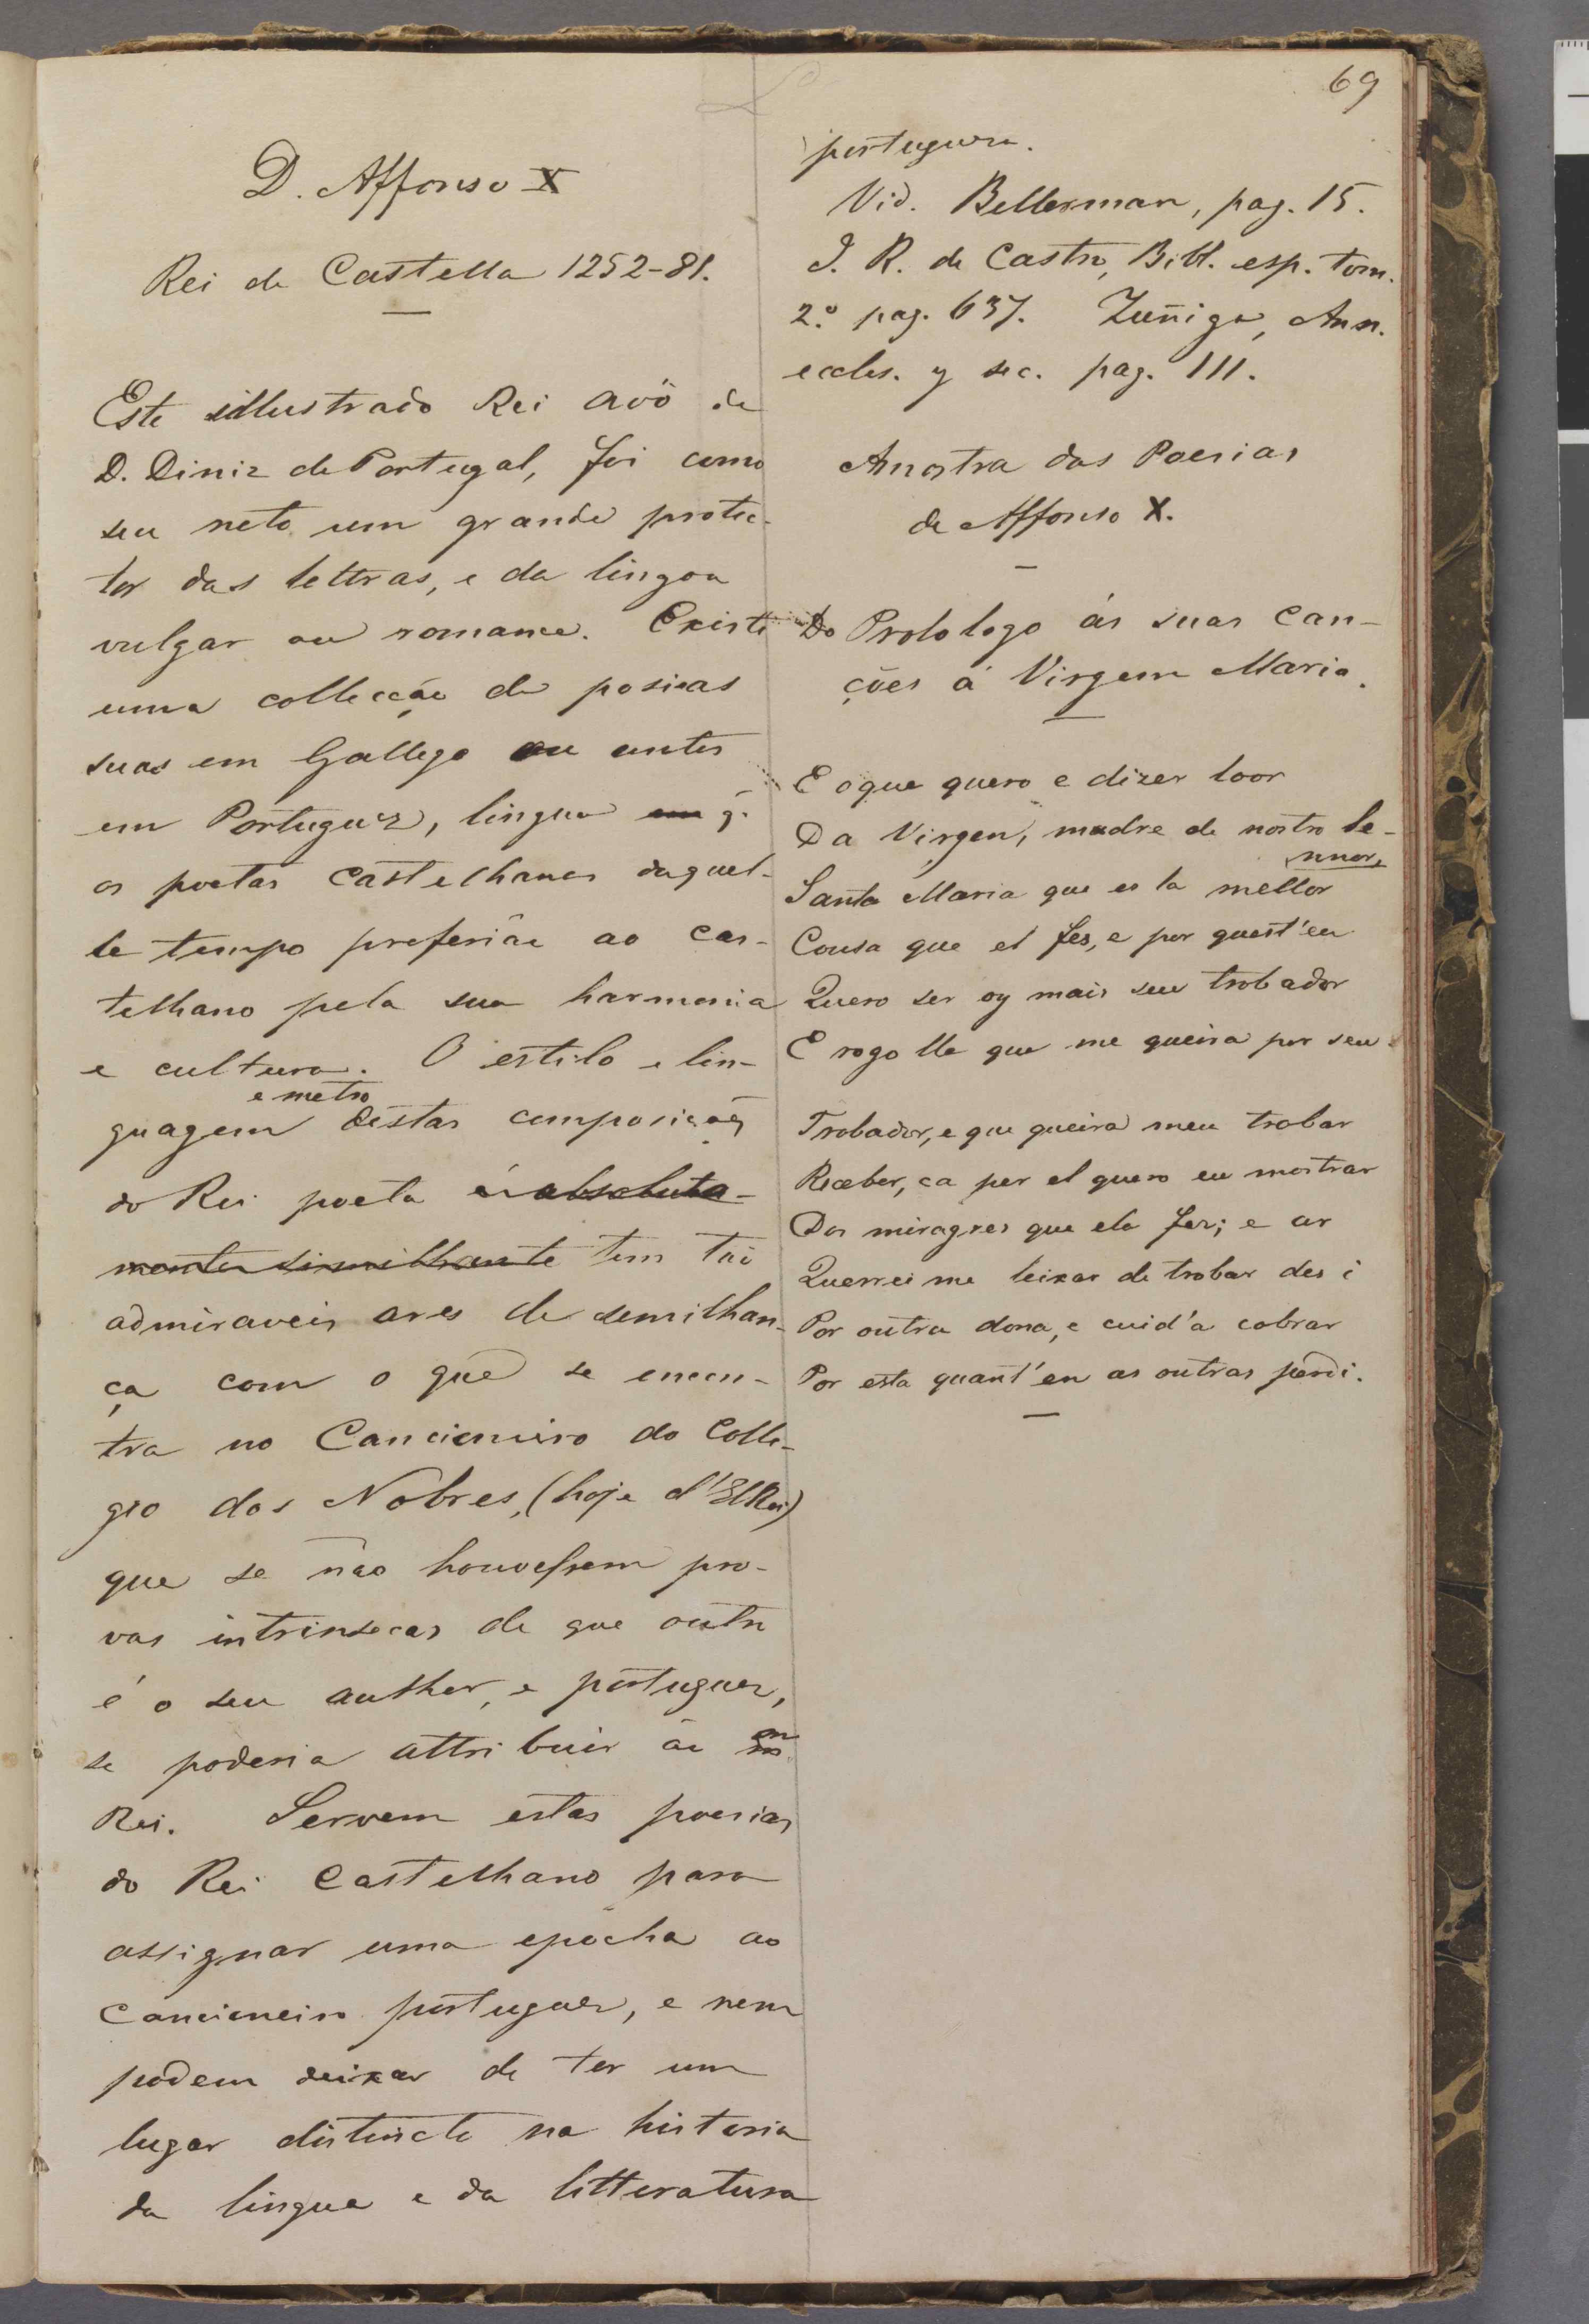 69
D. Affonso X
Rei de Castella 1252-81.
Este illustrado Rei avô de
D. Diniz de Portugal, foi como
seu neto um grande protec-
tor das lettras, e da lingoa
vulgar ou romance. Existe
uma collecção de posieas
suas em Gallego ou antes
em Portuguez, lingua em q.
os poetas castelhanos daquel-
le tempo preferião ao cas-
telhano pela sua harmonia
e cultura. O estilo e lin-
e metro
guagem déstas composições
do Rei poeta é absoluta-
mente similhante tem tão
admiraveis ares de semilhan-
ça com o que se encon-
tra no Cancioneiro do Colle-
gio dos Nobres, (hoje d'ElRei)
que se não houvessem pro-
vas intrinsecas de que outro
é o seu author, e portuguez,
se poderia attribuir ao mmo
Rei. Servem estas poesias
do Rei Castelhano para
assignar uma epócha ao
Cancioneiro portuguez, e nem
podem deixar de ter um
lugar distincto na historia
da lingua e da litteratura
portugueza.
Vid. Bellerman, pag. 15.
J. R. de Castro, Bibl. esp. tom.
2.º pag. 637. Zuñiga, Ann.
eccles. y sec. pag. 111.
Amostra das Poesias
de Affonso X.
Do Prologo ás suas Can-
ções á Virgem Maria.
E oque quero e dizer loor
Da Virgen, madre de nostro Se-
nnor,
Santa Maria que es la mellor
Cousa que el fes, e por quest'eu
Quero ser oy mais seu trobador
E rogolle que me queira por seu
Trobador, e que queira meu trobar
Receber, ca per el quero eu mostrar
Dos miragres que ela fez; e ar
Querrei me leixar de trobar des i
Por outra dona, e cuid'a cobrar
Por esta quant'en as outras perdi.